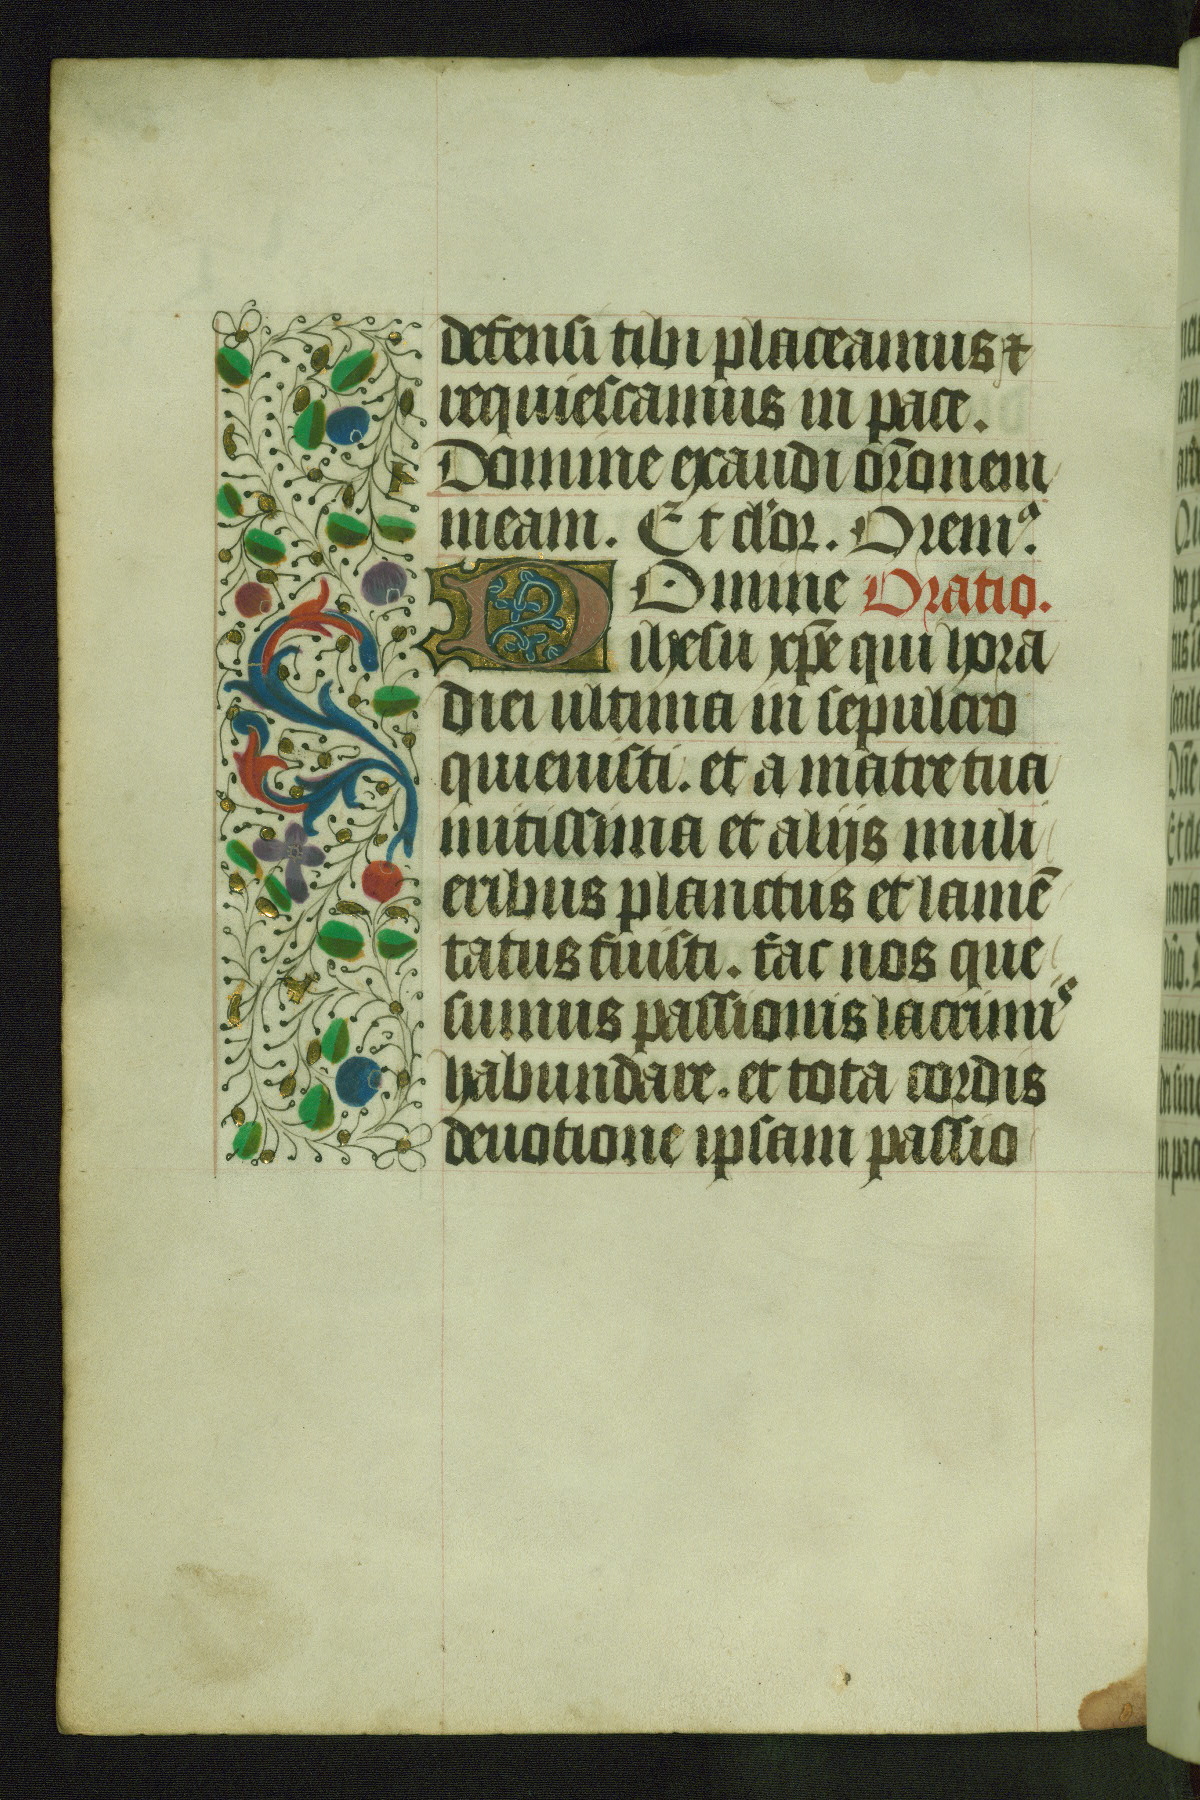 defensi tibi placeamus ⁊
requiescamus in pace.
Domine exaudi or̄onem
meam. Et clor. Oremꝰ.
Domine Oratio.
ihesu xp̄e qui hora
diei ultima in sepulcro
quieuisti. et a matre tua
mitissima et alijs muli
eribus planctus et lamē
tatus fuisti. fac nos que
sumus passionis lacrimis
habundare. et tota cordis
deuotione ipsam passio